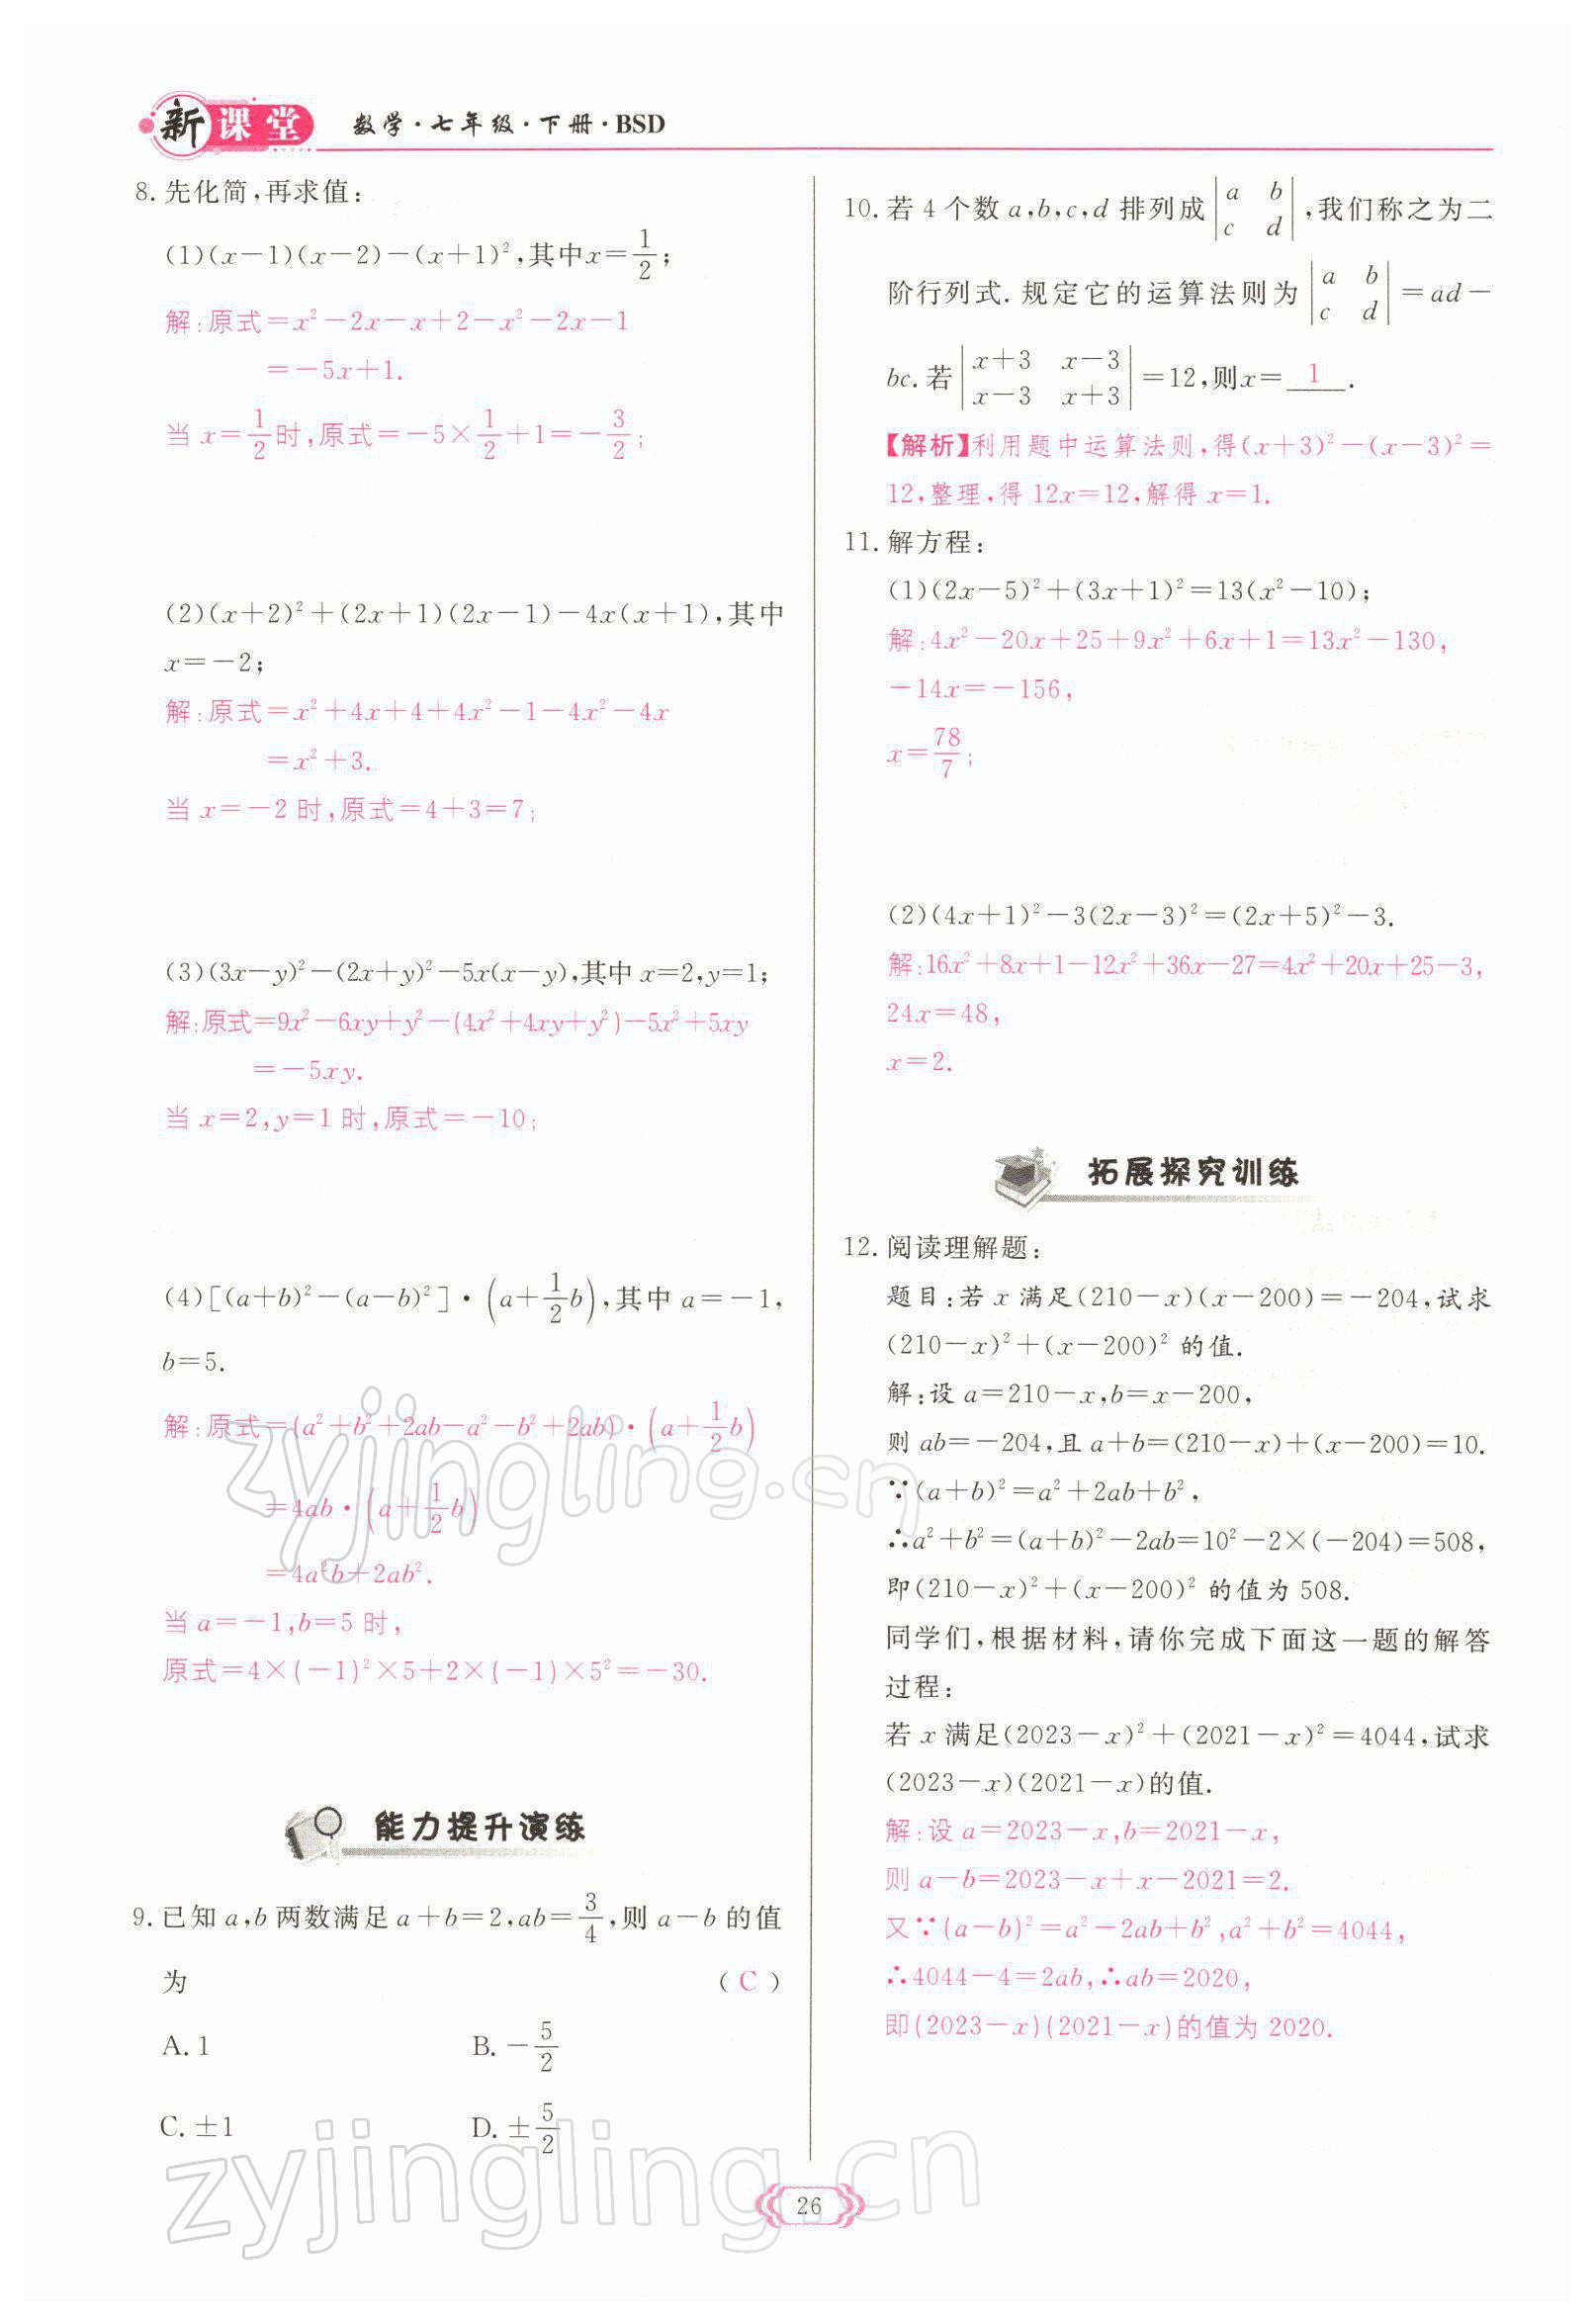 新课堂 数学·七年级·下册·BSD
8. 先化简,再求值:
(1)(x-1)(x-2)-(x+1)²,其中x=1/2;
解:原式=x²-2x-x+2-x²-2x-1
=-5x+1.
当 x=1/2时,原式=-5×1/2+1=-3/2;
(2)(x+2)²+(2x+1)(2x-1)-4x(x+1),其中
x=-2;
解:原式=x²+4x+4+4x²-1-4x²-4x
=x²+3.
当 x=-2 时,原式=4+3=7;
(3)(3x-y)²-(2x+y)²-5x(x-y),其中 x=2,y=1;
解:原式=9x²-6xy+y²-(4x²+4xy+y²)-5x²+5xy
=-5xy.
当 x=2,y=1 时,原式=-10;
(4)[(a+b)²-(a-b)²]·(a+1/2b),其中 a=-1,
b=5.
解:原式=(a²+b²+2ab-a²-b²+2ab)·(a+1/2b)
=4ab·(a+1/2b)
=4a²b+2ab².
当 a=-1,b=5 时,
原式=4×(-1)²×5+2×(-1)×5²=-30.
能力提升演练
9. 已知 a,b 两数满足 a+b=2,ab=3/4,则 a-b 的值
为 ( C )
A. 1 B. -5/2
C. ±1 D. ±5/2
10. 若 4 个数 a,b,c,d 排列成|a b; c d|,我们称之为二
阶行列式. 规定它的运算法则为|a b; c d|=ad-
bc. 若|x+3 x-3; x-3 x+3|=12,则x= 1 .
【解析】利用题中运算法则,得(x+3)²-(x-3)²=
12,整理,得 12x=12,解得 x=1.
11. 解方程:
(1)(2x-5)²+(3x+1)²=13(x²-10);
解:4x²-20x+25+9x²+6x+1=13x²-130,
-14x=-156,
x=78/7;
(2)(4x+1)²-3(2x-3)²=(2x+5)²-3.
解:16x²+8x+1-12x²+36x-27=4x²+20x+25-3,
24x=48,
x=2.
拓展探究训练
12. 阅读理解题:
题目:若 x 满足(210-x)(x-200)=-204,试求
(210-x)²+(x-200)² 的值.
解:设 a=210-x,b=x-200,
则 ab=-204,且 a+b=(210-x)+(x-200)=10.
∵(a+b)²=a²+2ab+b²,
∴a²+b²=(a+b)²-2ab=10²-2×(-204)=508,
即(210-x)²+(x-200)² 的值为 508.
同学们,根据材料,请你完成下面这一题的解答
过程:
若 x 满足(2023-x)²+(2021-x)²=4044,试求
(2023-x)(2021-x)的值.
解:设 a=2023-x,b=2021-x,
则 a-b=2023-x+x-2021=2.
又∵(a-b)²=a²-2ab+b²,a²+b²=4044,
∴4044-4=2ab,∴ab=2020,
即(2023-x)(2021-x)的值为 2020.
26
zyjingling.cn
zyjingling.cn